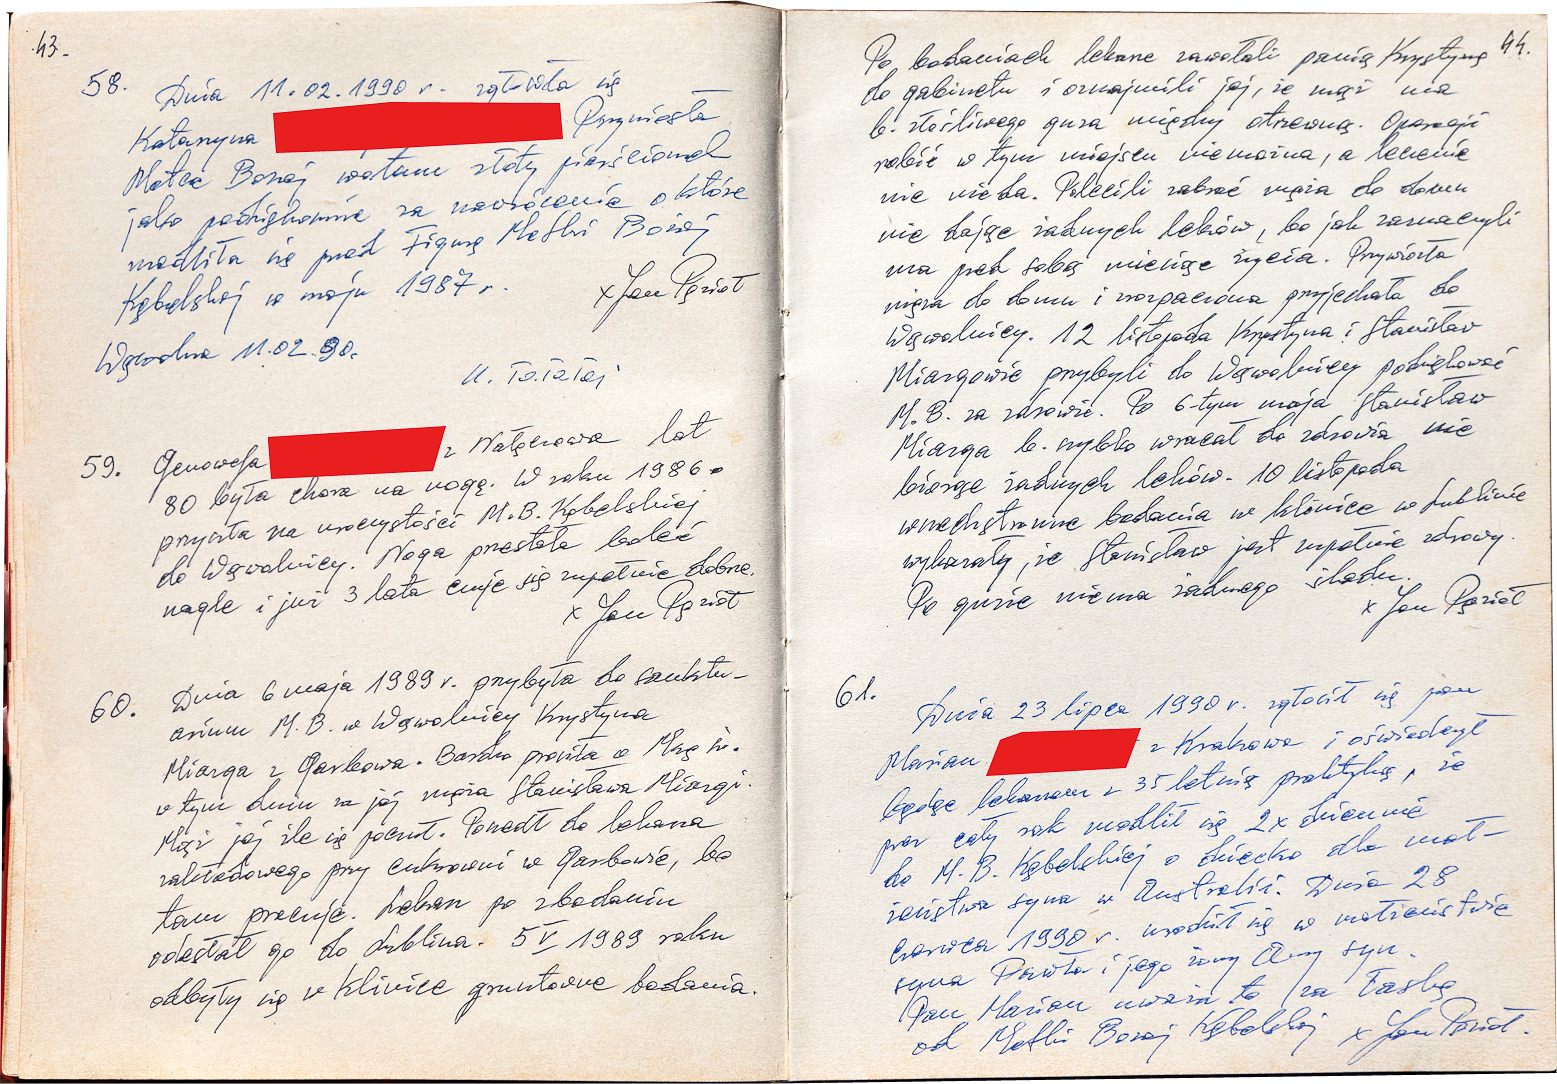 43.
58. Dnia 11.02.1990 r. zgłosiła się
Katarzyna Przyniosła
Matce Bożej wotum złoty pierścionek
jako podziękowanie za nawrócenie o które
modliła się przed Figurą Matki Bożej
Kębelskiej w maju 1987 r.
x Jan Pęzioł
Wąwolnica 11.02.90.
59. Genowefa z Nałęczowa lat
80 była chora na nogę. W roku 1986
przyszła na uroczystości M.B. Kębelskiej
do Wąwolnicy. Noga przestała boleć
nagle i już 3 lata czuje się zupełnie dobrze.
x Jan Pęzioł
60. Dnia 6 maja 1989 r. przybyła do sanktu-
arium M.B. w Wąwolnicy Krystyna
Miarga z Garbowa. Bardzo prosiła o Mszę św.
w tym dniu za jej męża Stanisława Miargi.
Mąż jej źle się poczuł. Poszedł do lekarza
zakładowego przy cukrowni w Garbowie, bo
tam pracuje. Lekarz po zbadaniu
odesłał go do Lublina. 5 V 1989 roku
odbyły się w Klinice gruntowne badania.
44.
Po badaniach lekarze zawołali panią Krystynę
do gabinetu i oznajmili jej, że mąż ma
b. złośliwego guza między otrzewną. Operacji
robić w tym miejscu nie można, a leczenie
nic nie da. Polecili zabrać męża do domu
nie dając żadnych leków, bo jak zaznaczyli
ma przed sobą miesiąc życia. Przywiozła
męża do domu i zrozpaczona przyjechała do
Wąwolnicy. 12 listopada Krystyna i Stanisław
Miargowie przybyli do Wąwolnicy podziękować
M.B. za zdrowie. Po 6-tym maja Stanisław
Miarga b. szybko wracał do zdrowia nie
biorąc żadnych leków. 10 listopada
wszechstronne badania w klinice w Lublinie
wykazały, że Stanisław jest zupełnie zdrowy.
Po guzie niema żadnego śladu.
x Jan Pęzioł
61. Dnia 23 lipca 1990 r. zgłosił się pan
Marian z Krakowa i oświadczył
będąc lekarzem z 35 letnią praktyką, że
przez cały rok modlił się 2x dziennie
do M.B. Kębelskiej o dziecko dla mał-
żeństwa syna w Australii. Dnia 28
czerwca 1990 r. urodził się w małżeństwie
syna Pawła i jego żony Any syn.
Pan Marian uważa to za łaskę
od Matki Bożej Kębelskiej x Jan Pęzioł.